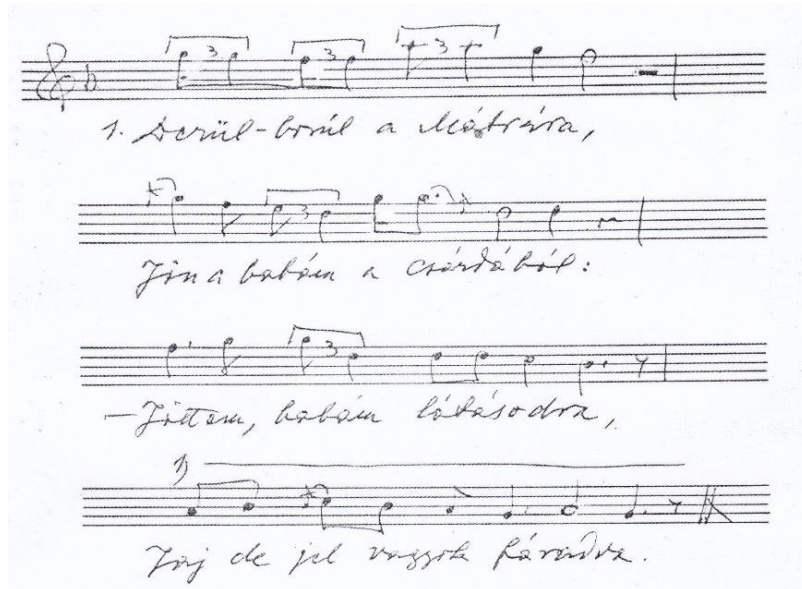 3 3 3
1. Derül-borúl a Mátrára,
3
Jön a babám a csárdából:
3
– Jöttem, babám látásodra,
1)
Jaj de vagyok fáradva.